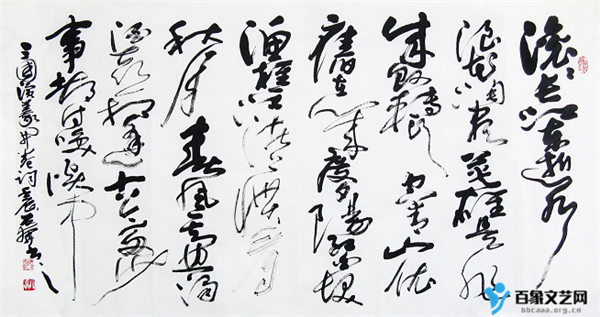 滚滚长江东逝水
浪花淘尽英雄是非
成败转头空青山依
舊在几度夕陽红白发
渔樵江渚上惯看
秋月春風一壶浊
酒喜相逢古今多少
事都付笑谈中
三国演義开卷词
百象文艺网
bbcaaa.org.cn